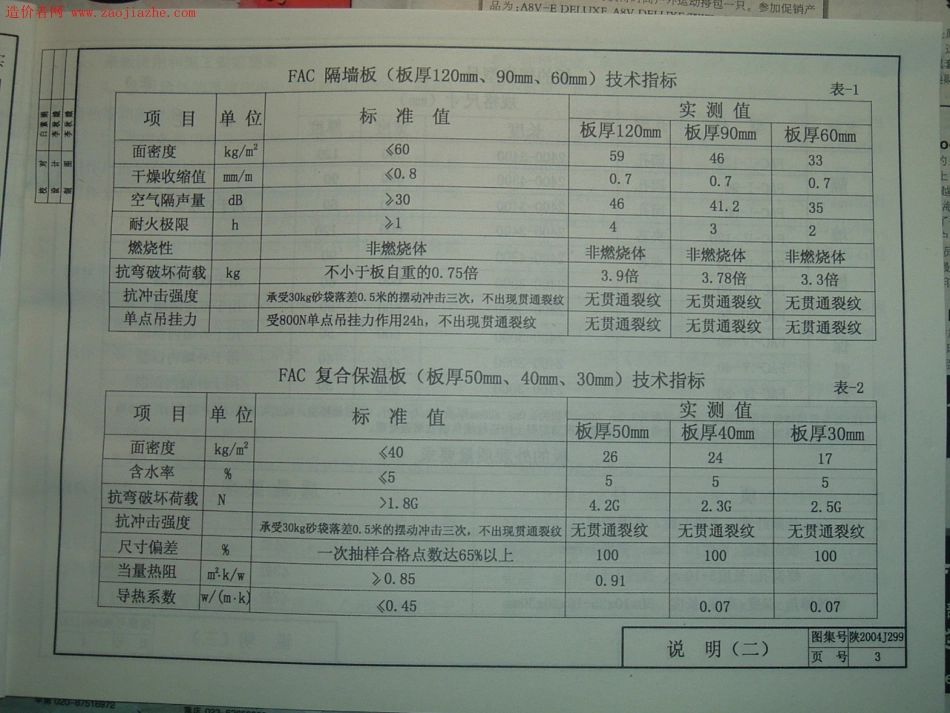 造价者网 www.zaojiazhe.com
品为:A8V-E DELUXE、A8V DELUXE
FAC 隔墙板（板厚120mm、90mm、60mm）技术指标
表-1
项 目 单 位 标 准 值 实 测 值
板厚120mm 板厚90mm 板厚60mm
面密度 kg/m² ≤60 59 46 33
干燥收缩值 mm/m ≤0.8 0.7 0.7 0.7
空气隔声量 dB ≥30 46 41.2 35
耐火极限 h ≥1 4 3 2
燃烧性 非燃烧体 非燃烧体 非燃烧体 非燃烧体
抗弯破坏荷载 kg 不小于板自重的0.75倍 3.9倍 3.78倍 3.3倍
抗冲击强度 承受30kg砂袋落差0.5米的摆动冲击三次，不出现贯通裂纹 无贯通裂纹 无贯通裂纹 无贯通裂纹
单点吊挂力 受800N单点吊挂力作用24h，不出现贯通裂纹 无贯通裂纹 无贯通裂纹 无贯通裂纹
FAC 复合保温板（板厚50mm、40mm、30mm）技术指标
表-2
项 目 单 位 标 准 值 实 测 值
板厚50mm 板厚40mm 板厚30mm
面密度 kg/m² ≤40 26 24 17
含水率 % ≤5 5 5 5
抗弯破坏荷载 N >1.8G 4.2G 2.3G 2.5G
抗冲击强度 承受30kg砂袋落差0.5米的摆动冲击三次，不出现贯通裂纹 无贯通裂纹 无贯通裂纹 无贯通裂纹
尺寸偏差 % 一次抽样合格点数达65%以上 100 100 100
当量热阻 m²·k/w ≥0.85 0.91
导热系数 w/(m·k) ≤0.45 0.07 0.07
说 明（二）
图集号 陕2004J299
页 号 3
校 对
设 计
制 图